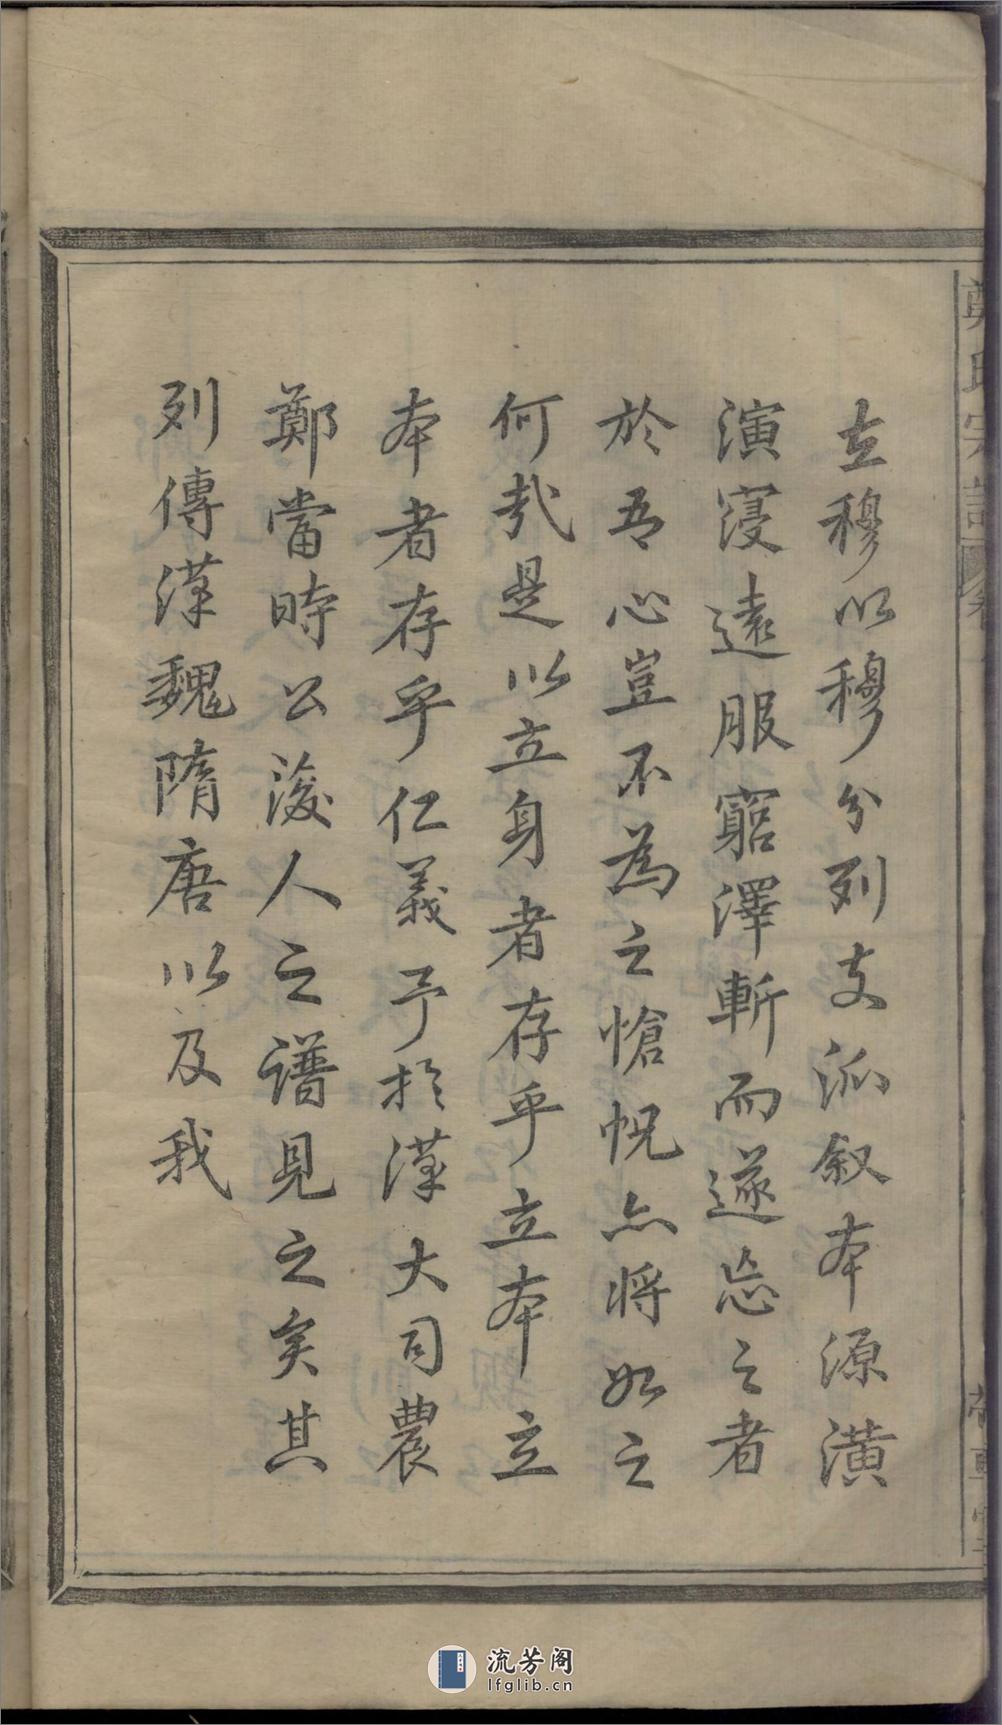 立穆以穆分列支派叙本源潢
演寖遠服窮澤斬而遂忘之者
於吾心豈不為之愴怳亦將如之
何哉是以立身者存乎立本立
本者存乎仁義予於漢大司農
鄭當時公後人之譜見之矣其
列傳漢魏隋唐以及我
鄭氏宗譜
卷
流芳阁
lfglib.cn